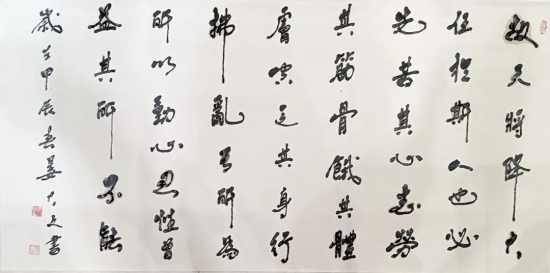 故天將降大
任於斯人也必
先苦其心志勞
其筋骨餓其體
膚空乏其身行
拂亂其所為
所以動心忍性曾
益其所不能
歲在甲辰春姜書